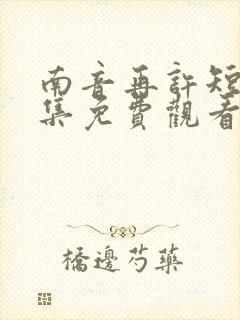 南音再許短
集免費觀看
橋邊芍藥